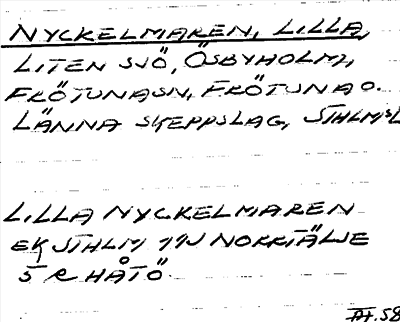 NYCKELMAREN, LILLA,
LITEN SJÖ, ÖSBYHOLM,
FRÖTUNA SN, FRÖTUNA O.
LÄNNA SKEPPSLAG, STHLMS L
LILLA NYCKELMAREN
EK STHLM 11J NORRTÄLJE
5 R HÅTÖ.
58